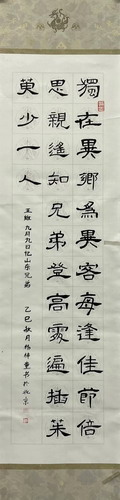 獨在異鄉為異客每逢佳節倍
思親遙知兄弟登高處遍插茱
萸少一人
王維 九月九日忆山东兄弟
乙巳秋月楊
書於北京